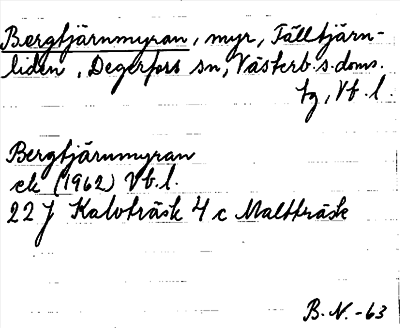 Bergtjärnmyran, myr, Fälltjärn-
liden, Degerfors sn, Västerb. s. doms.
tg, Vb. l.
Bergtjärnmyran
ek (1962) Vb. l.
22 J Kalvträsk 4 c Maltträsk
B. N. -63